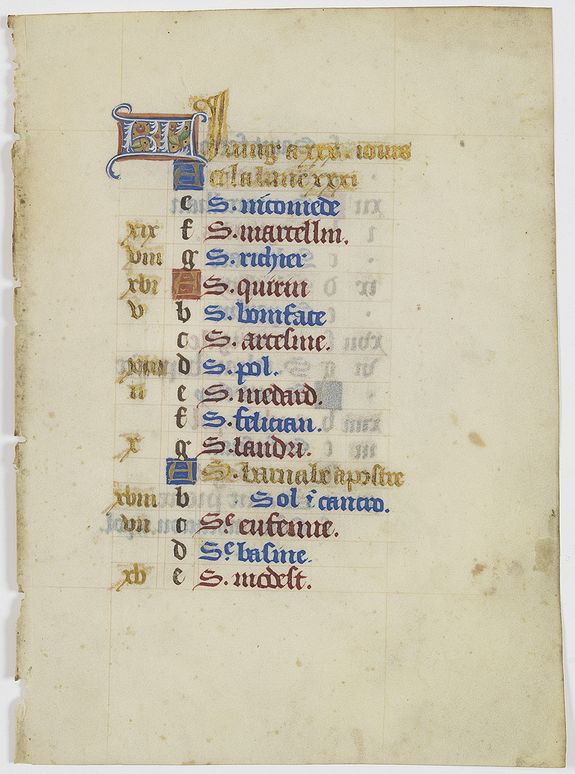 KL Juing a xxx. iours
A et la lune xxxi
e S. nicomede
xix f S. marcellin.
viii g S. richier
xvi A S. quirin
v b S. boniface
c S. artesme.
xiii d S. pol.
ii e S. medard.
f S. felician.
x g S. landri.
A S. barnabe apostre
xviii b Sol i cancro.
vii c Se eufemie.
d Se basine.
xv e S. modest.